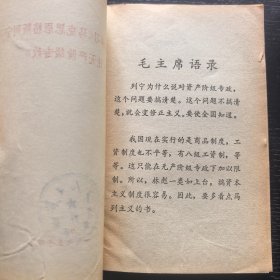 毛主席语录
列宁为什么说对资产阶级专政，
这个问题要搞清楚。这个问题不搞清
楚，就会变修正主义。要使全国知道。
我国现在实行的是商品制度，工
资制度也不平等，有八级工资制，等
等。这只能在无产阶级专政下加以限
制。所以，林彪一类如上台，搞资本
主义制度很容易。因此，要多看点马
列主义的书。